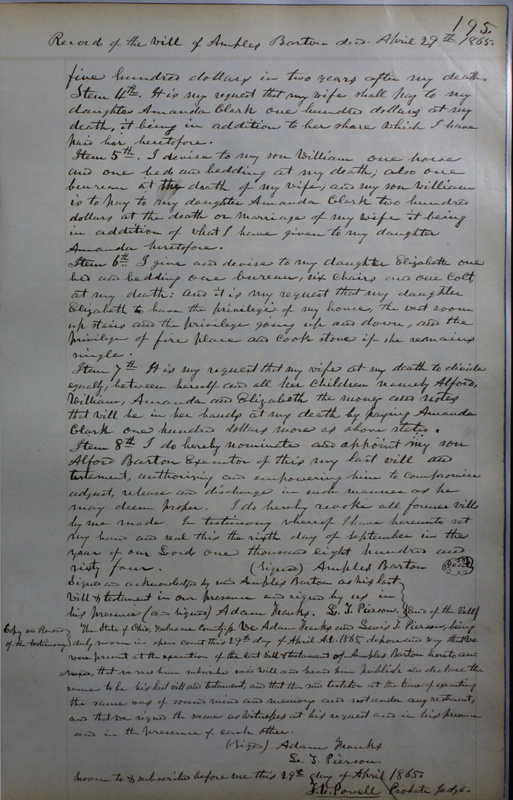 195.
Record of the Will of Amples Barton decd. April 29th 1865.
five hundred dollars in two years after my death.
Item 4th. It is my request that my wife shall pay to my
daughter Amanda Clark one hundred dollars at my
death, it being in addition to her share which I have
paid her heretofore.
Item 5th. I devise to my son William one horse
and one bed and bedding at my death; also one
bureau at the death of my wife, and my son William
is to pay to my daughter Amanda Clark two hundred
dollars at the death or marriage of my wife it being
in addition of what I have given to my daughter
Amanda heretofore.
Item 6th I give and devise to my daughter Elizabeth one
bed and bedding one bureau, six chairs and one Colt,
at my death: and it is my request that my daughter
Elizabeth to have the privilege of my house, the west room
up stairs and the privilege going up and down, and the
privilege of fire place and cook stove if she remains
single.
Item 7th It is my request that my wife at my death to divide
equally, between herself and all her children namely Alford,
William, Amanda and Elizabeth the money and notes
that will be in her hands at my death by paying Amanda
Clark one hundred dollars more as above stated.
Item 8th I do hereby nominate and appoint my son
Alford Barton Executor of this my last will and
testament, authorising and empowering him to compromise
adjust, release and discharge in such manner as he
may deem proper. I do hereby revoke all former wills
by me made. In testimony whereof I have hereunto set
my hand and seal this the sixth day of September in the
year of our Lord one thousand eight hundred and
sixty four. (Signed) Amples Barton
Signed and acknowledged by said Amples Barton as his last
Will & testament in our presence and signed by us in
his presence (and signed) Adam Franks. L. T. Pierson. of the Will
Copy and Record of the testimony
The State of Ohio, County ss We Adam Franks and Lewis T. Pierson, being
duly sworn in open court this 29th day of April A.D. 1865, depose and say that we
were present at the execution of the last will & testament of Amples Barton hereto an-
nexed, that we saw him subscribe said will and heard him publish and declare the
same to be his last will and testament, and that the said testator at the time of executing
the same was of sound mind and memory and not under any restraint,
and that we signed the same as witnesses at his request and in his presence
and in the presence of each other.
(Signed) Adam Franks
L. T. Pierson
Sworn to & subscribed before me this 29th day of April 1865.
T. W. Powell Probate Judge.